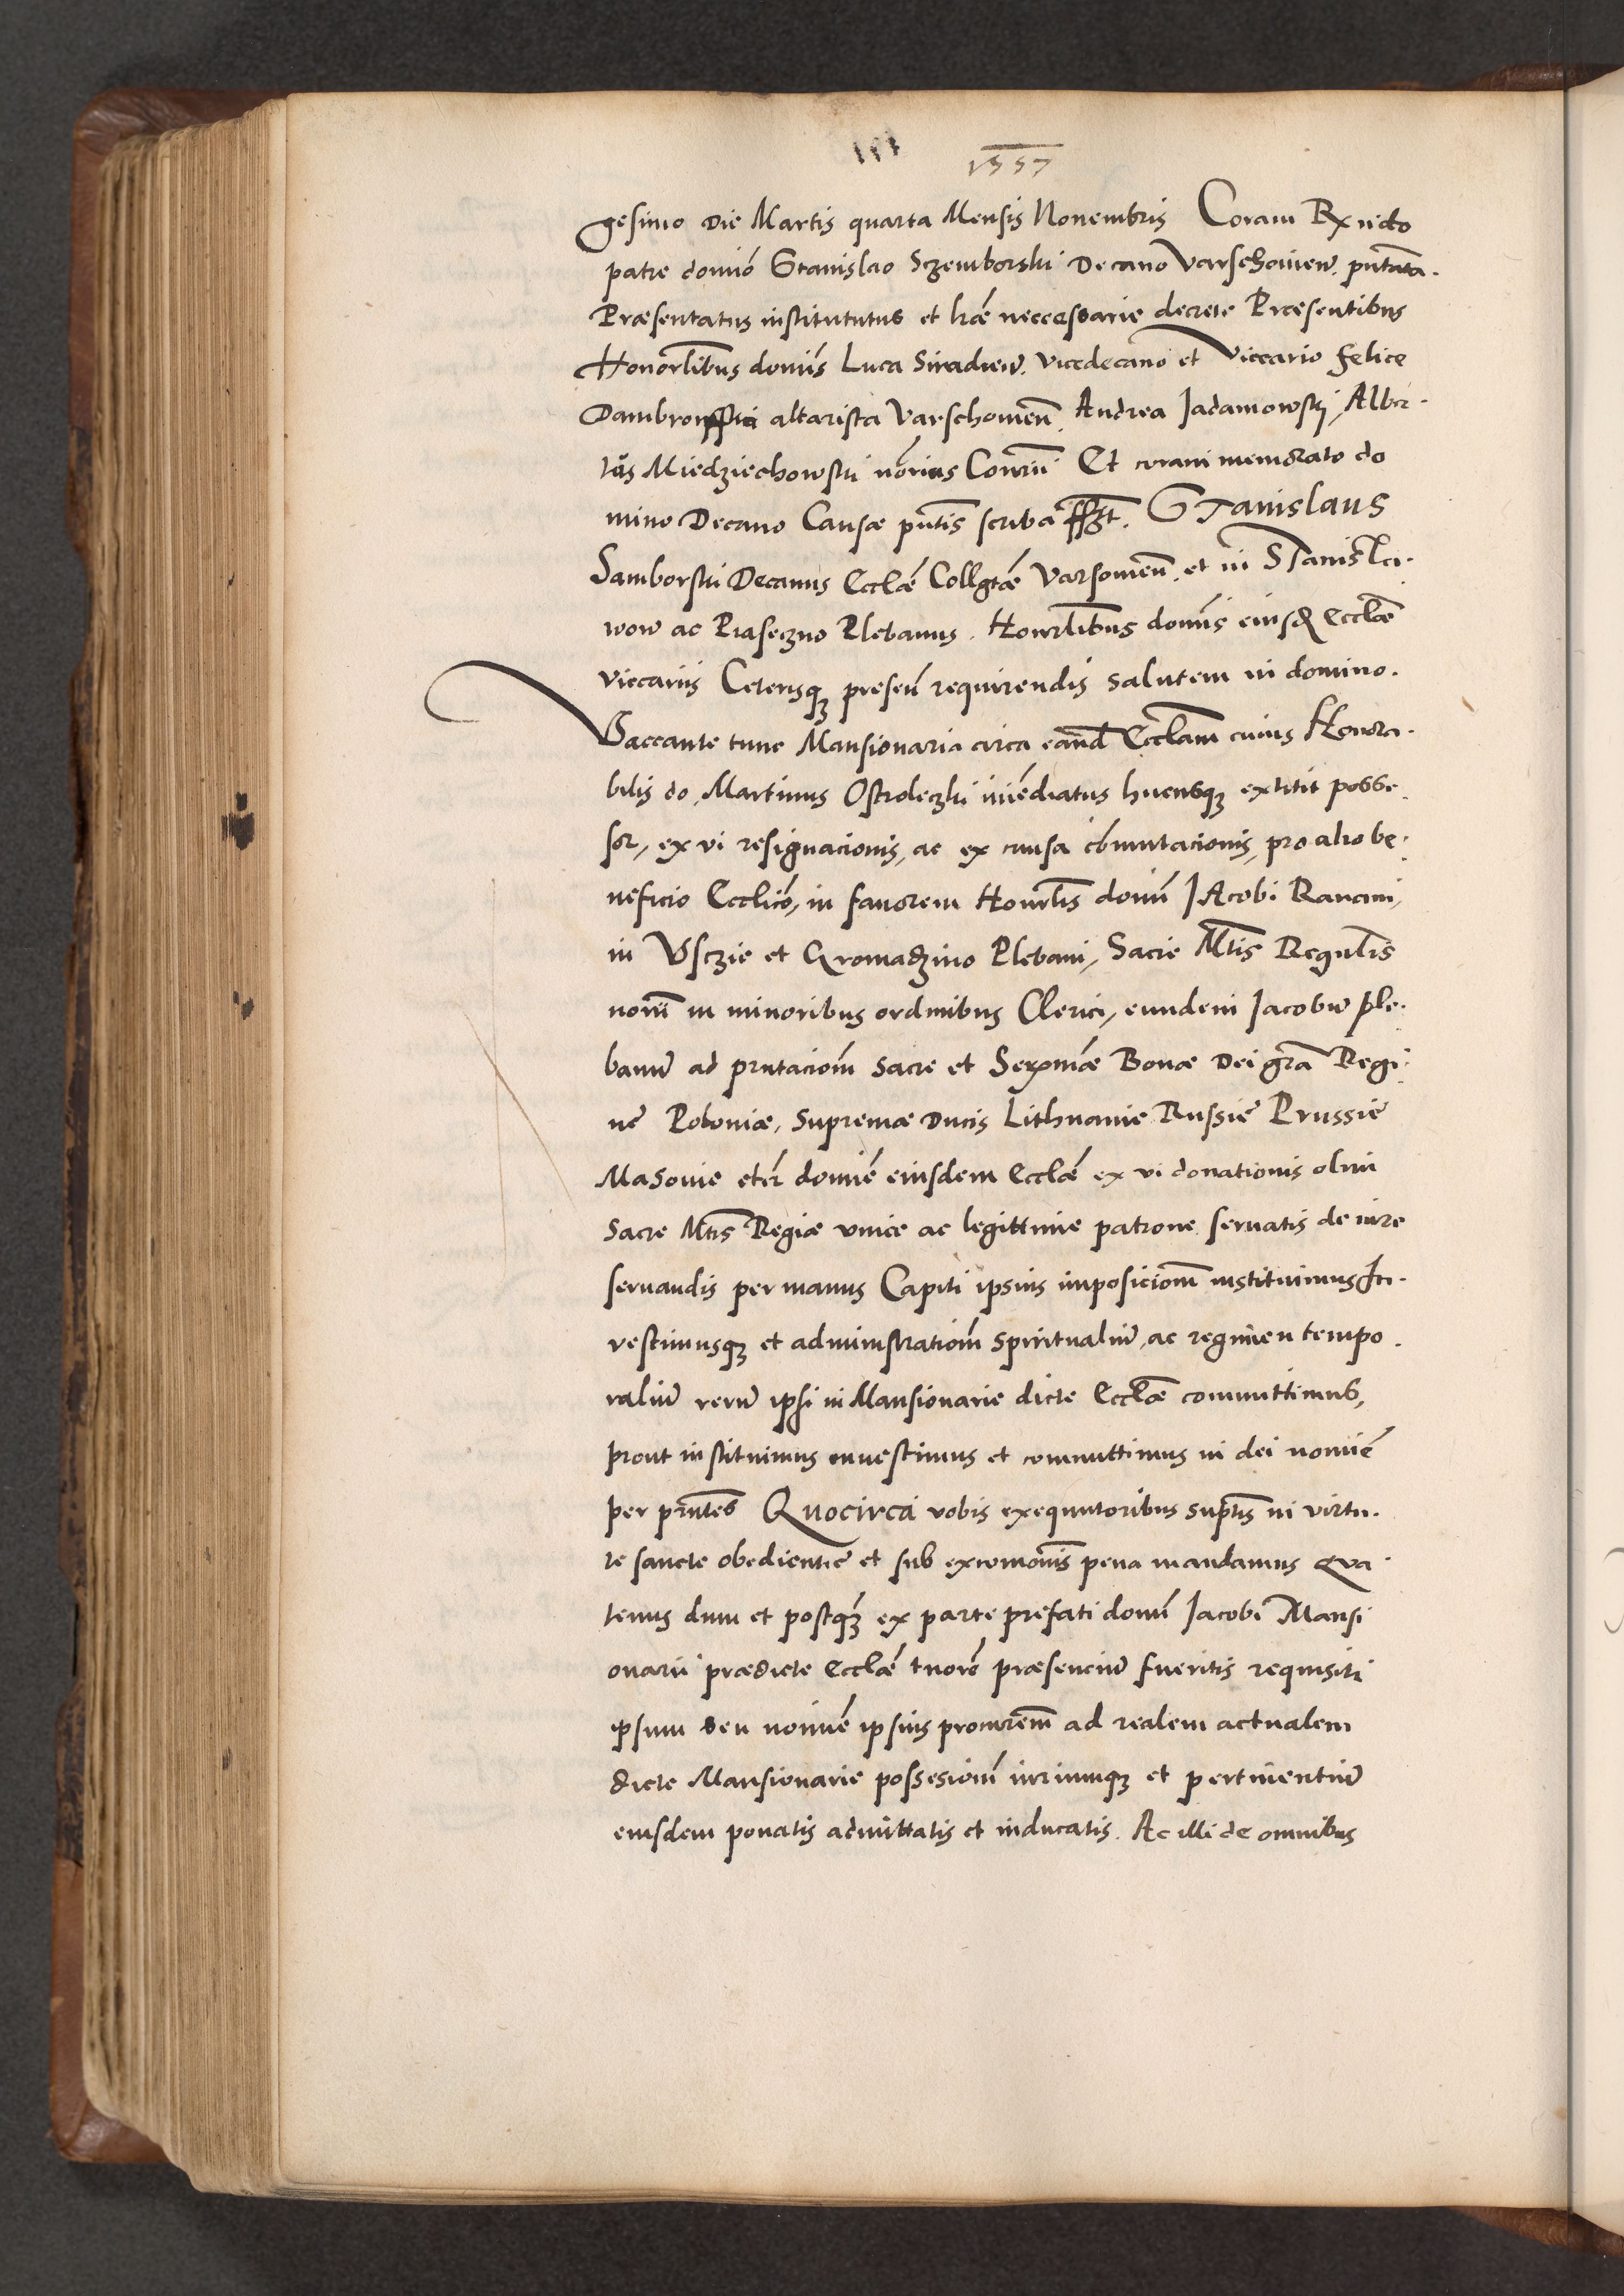 1557
gesimo die Martis quarta Mensis Nouembris Coram Rx ndo
patre domio Stanislao Sczemborski Decano Varschouien. pntata.
Præsentatus institututus et lræ neccessarie decrete Præsentibus
Honorlibus domis Luca Siradien. vicedecano et Viccario Felice
Dambrowski altarista Varschouien. Andrea Jadamowski, Alber.
tus Miedziechowski norius Consrii Et coram memorato do
mino Decano Causæ pntis scriba sspt. Stanislaus
Samborski Decanus Ecclæ Collgtæ Varsouien. et in Stanisla.
wow ac Piaseczno Plebanus. Honorlibus domis eiusd Ecclæ
viccariis Ceterisq3 presen requirendis salutem in domino.
Vaccante tunc Mansionaria circa eand Ecclam cuius Honora.
bilis do. Martinus Ostroleczki imediatus hucusq3 extitit posse.
sor, ex vi resignacionis, ac ex causa comutacionis, pro alio be.
neficio Ecclico, in fauorem Honorlis domi Jacobi
in Vsczie et Gromadzino Plebani, Sacre Mtis Regnlis
norii in minoribus ordinibus Clerici, eundem Jacobu ple.
banu ad pntaciom sacre et Serxmæ Bonæ Dei gra Regi.
ne Poloniæ, supremæ Ducis Lithuanie Russie Prussie
Masouie eter domie eiusdem Ecclæ ex vi donationis olim
sacre Mtis Regiæ vnice ac legittime patrone seruatis de iure
seruandis per manus Capiti ipsius imposiciom instituimus In.
vestimusq3 et administratiom spiritualiu, ac regimen tempo.
raliu reru ipsi in Mansionarie dicte Ecclæ committimus,
prout instituimus inuestimus et committimus in dei nomie
per pntes Quocirca vobis exequutoribus suptis in virtu.
te sancte obedientie et sub excomonis pena mandamus Qua.
tenus dum et postq3 ex parte prefati domi Jacobi Mansi
onarii prædicte Ecclæ tnore præsenciu fueritis requisiti
ipsum seu nomie ipsius procurem ad realem actualem
dicte Mansionarie possesiom iuriumq3 et pertinentiu
eiusdem ponatis admittatis et inducatis. Ac illi de omnibus